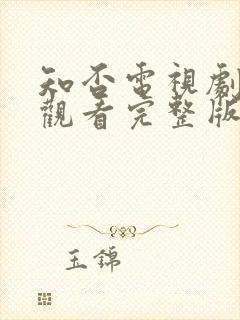 知否電視劇
觀看完整版
玉錦